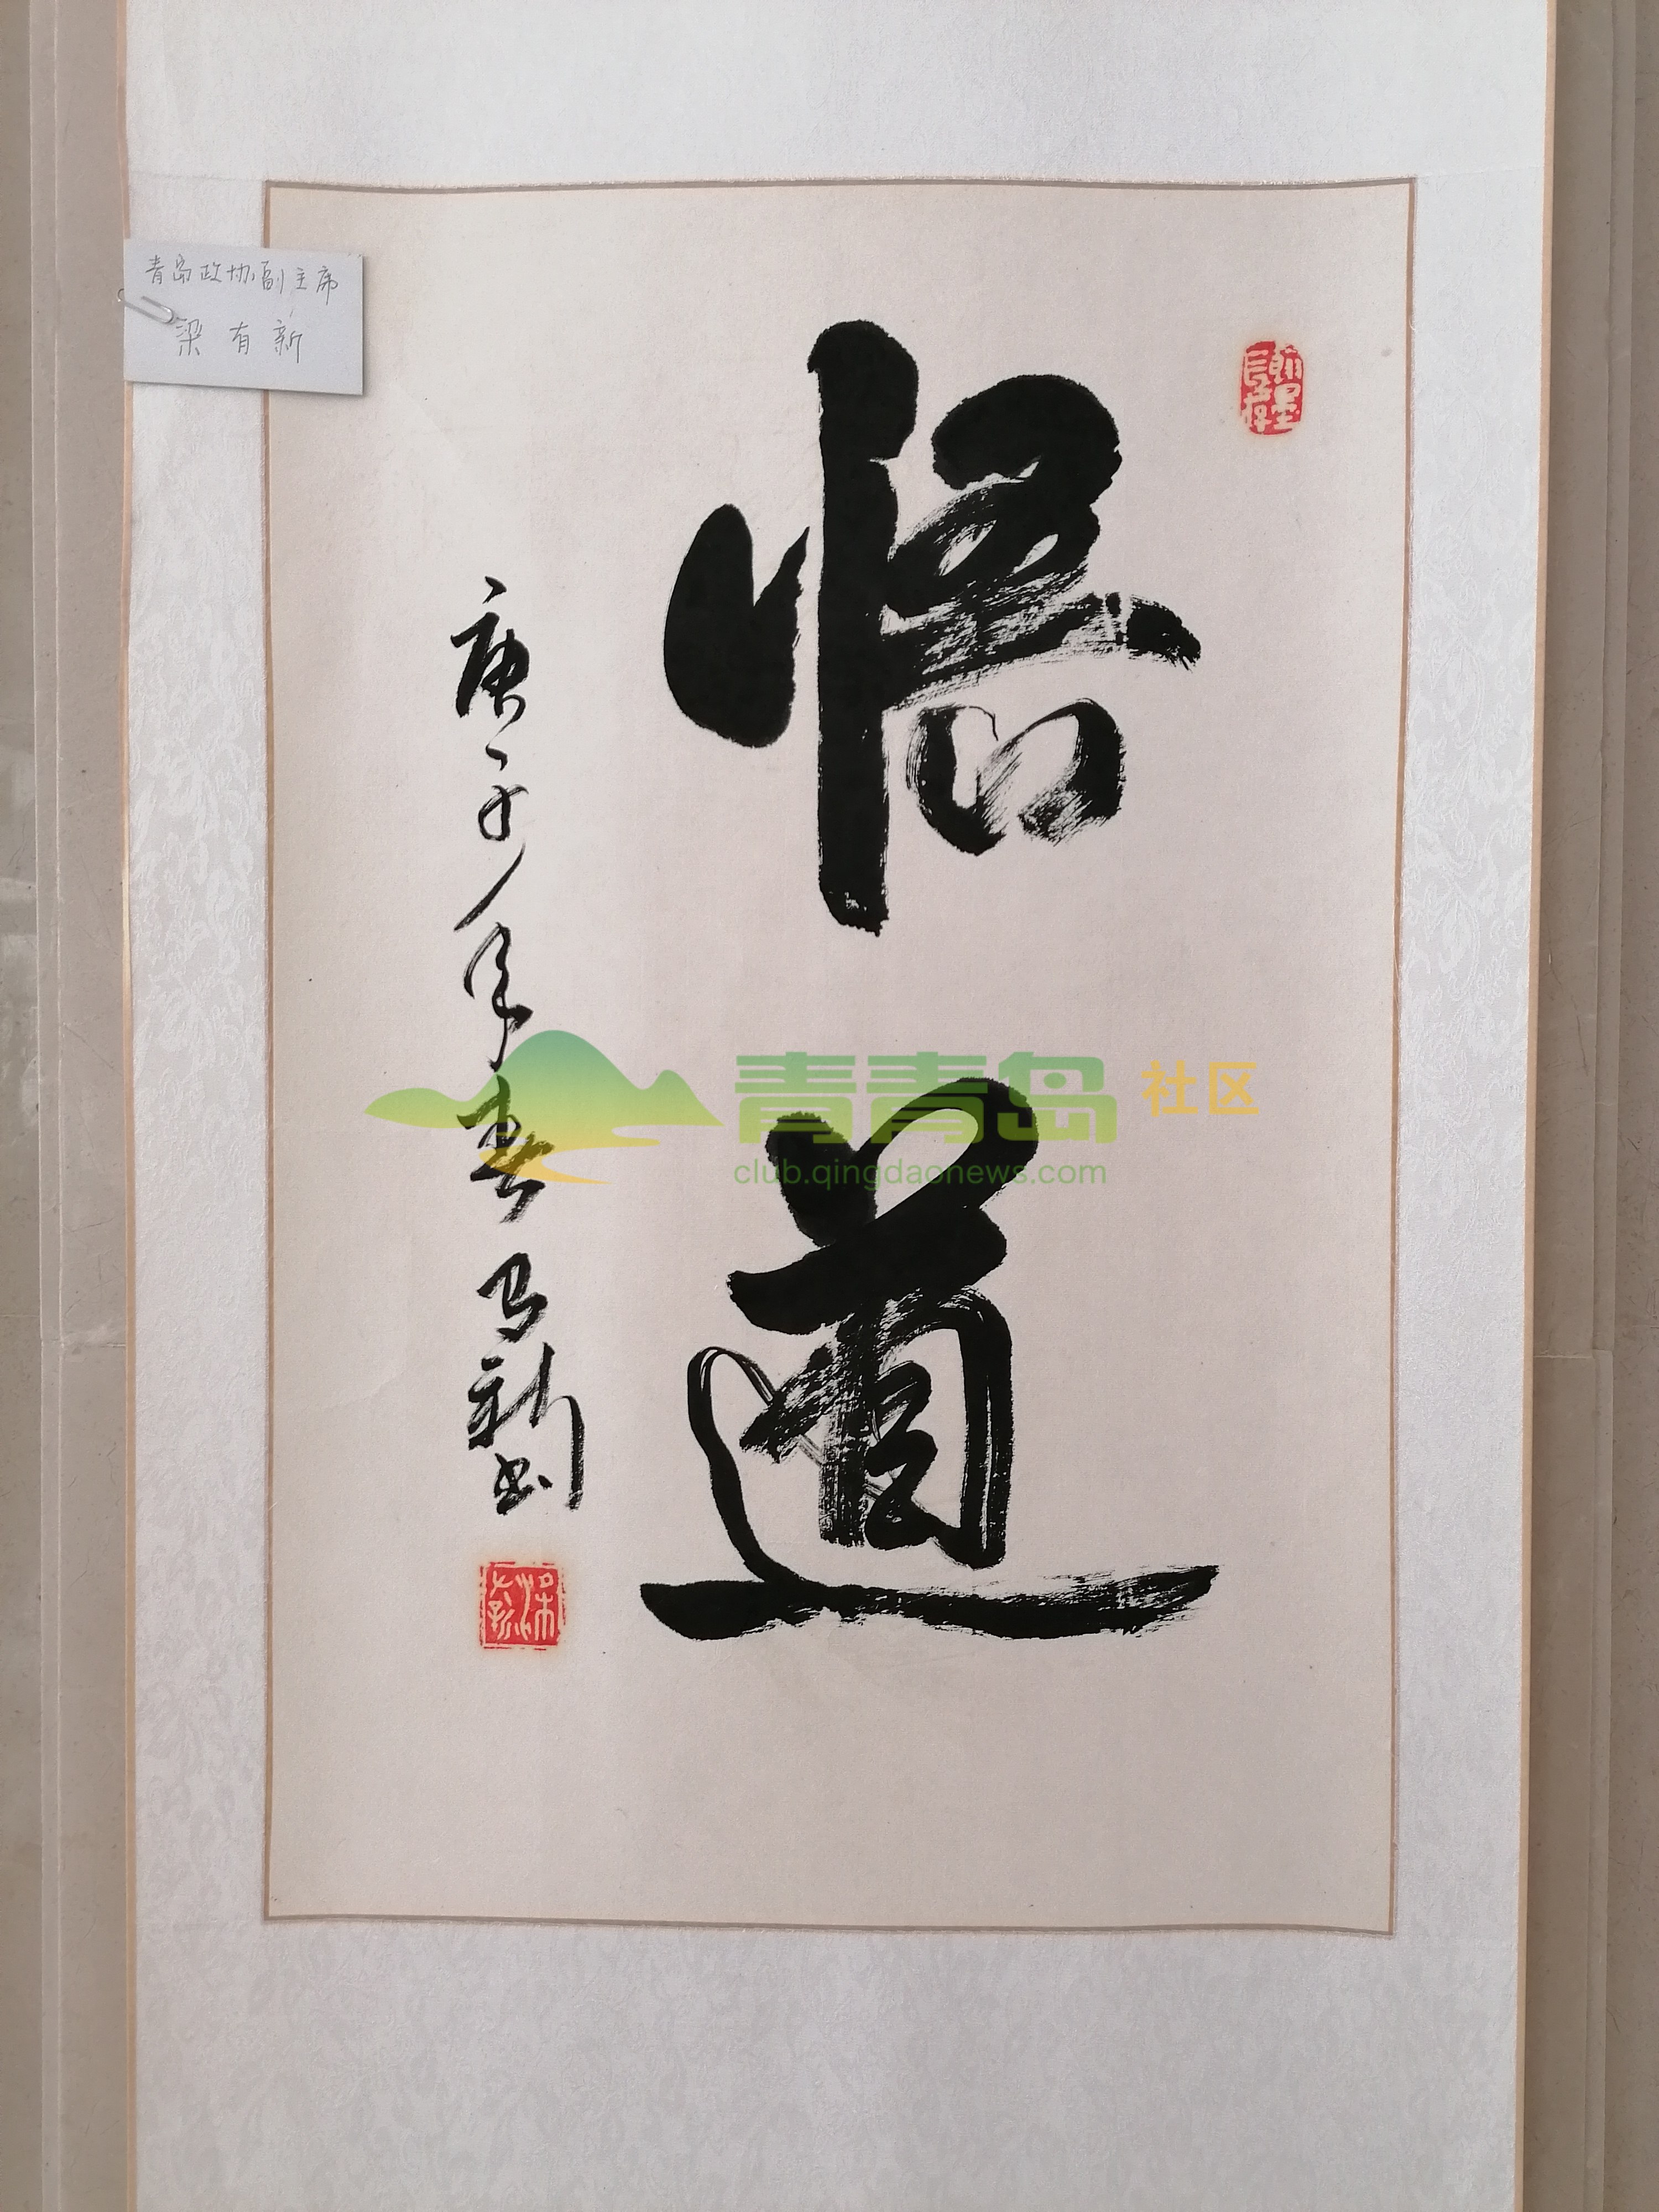 青岛政协副主席
梁有新
悟道
庚子年春有新书
翰墨
长存
青青岛社区
club.qingdaonews.com